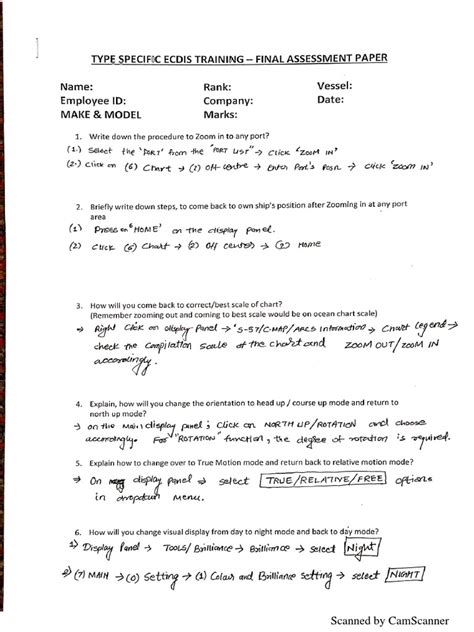 TYPE SPECIFIC ECDIS TRAINING – FINAL ASSESSMENT PAPER
Name: Rank: Vessel:
Employee ID: Company: Date:
MAKE & MODEL Marks:
1. Write down the procedure to Zoom in to any port?
(1.) Select the 'PORT' from the "PORT LIST" → Click 'ZOOM IN'
(2.) Click on (6) Chart → (1) Off-centre → Enter Port's Posn. → click 'ZOOM IN'
2. Briefly write down steps, to come back to own ship's position after Zooming in at any port
area
(1) Press on 'HOME' on the display panel.
(2) Click (6) Chart → (2) Off center → (2) Home
3. How will you come back to correct/best scale of chart?
(Remember zooming out and coming to best scale would be on ocean chart scale)
⇒ Right Click on display Panel → 'S-57/C-MAP/ARCS Information → Chart legend →
check the Compilation Scale of the chart and ZOOM OUT/ZOOM IN
accordingly.
4. Explain, how will you change the orientation to head up / course up mode and return to
north up mode?
→ on the Main display panel; Click on NORTH UP/ROTATION and choose
accordingly. For "ROTATION" function, the degree of rotation is required.
5. Explain how to change over to True Motion mode and return back to relative motion mode?
⇒ On display panel → select TRUE/RELATIVE/FREE options
in dropdown menu.
6. How will you change visual display from day to night mode and back to day mode?
1) Display Panel → TOOLS/Brilliance → Brilliance → select Night
2) (7) MAIN → (0) Setting → (1) Colour and Brilliance Setting → select NIGHT
Scanned by CamScanner